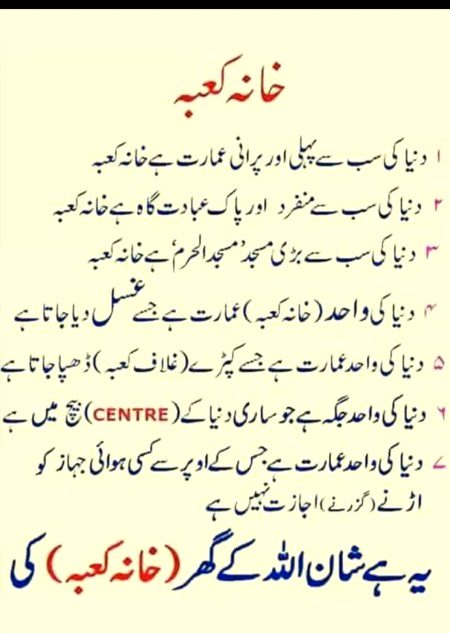 خانہ کعبہ
۱ دنیا کی سب سے پہلی اور پرانی عمارت ہے خانہ کعبہ
۲ دنیا کی سب سے منفرد اور پاک عبادت گاہ ہے خانہ کعبہ
۳ دنیا کی سب سے بڑی مسجد ’مسجد الحرم‘ ہے خانہ کعبہ
۴ دنیا کی واحد (خانہ کعبہ) عمارت ہے جسے غسل دیا جاتا ہے
۵ دنیا کی واحد عمارت ہے جسے کپڑے (غلاف کعبہ) ڈھپا جاتا ہے
۶ دنیا کی واحد جگہ ہے جو ساری دنیا کے (CENTRE) بیچ میں ہے
۷ دنیا کی واحد عمارت ہے جس کے اوپر سے کسی ہوائی جہاز کو
اڑنے (گزرنے) اجازت نہیں ہے
یہ ہے شان اللہ کے گھر (خانہ کعبہ) کی